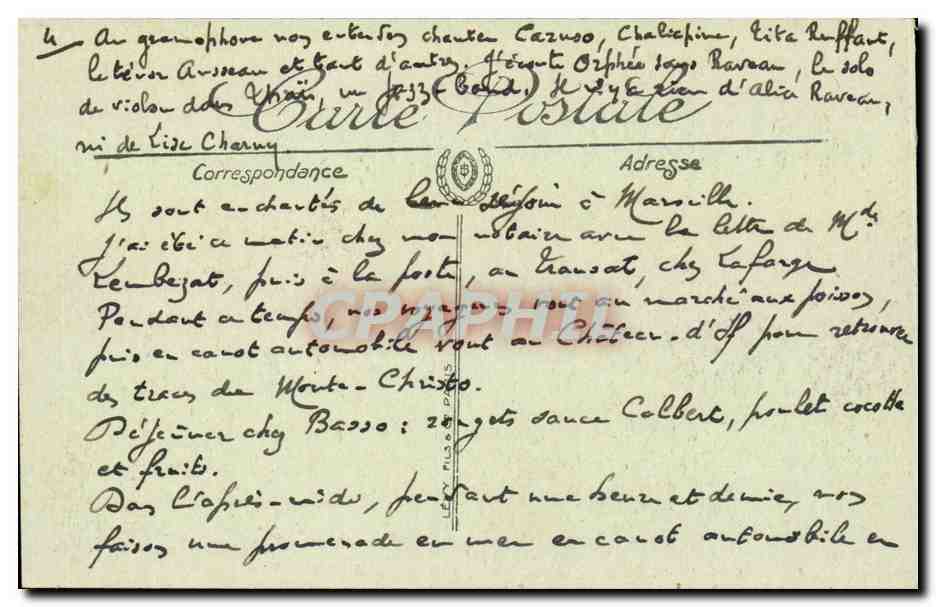 4 Au gramophone nous entendons chanter Caruso, Chaliapine, Tita Ruffart,
le ténor Ansseau et tant d'autres. J'écoute Orphée sans Raveau, le solo
de violon dans Thaïs, un Jazz-band. Il n'y a rien d'Alice Raveau,
ni de Lise Charny.
Carte Postale
Correspondance
Adresse
Ils sont enchantés de leur séjour à Marseille.
J'ai été ce matin chez mon notaire avec la lettre de Md.
, puis à la poste, au Transat, chez Lafarge
Pendant ce temps, nos voyageurs vont au marché aux poissons,
puis en canot automobile vont au Château-d'If pour retrouver
des traces de Monte-Christo.
Déjeûner chez Basso : rougets sauce Colbert, poulet cocotte
et fruits.
Dans l'après-midi, pendant une heure et demie, nous
faisons une promenade en mer en canot automobile en
LÉVY FILS & Cie PARIS
CPARHU